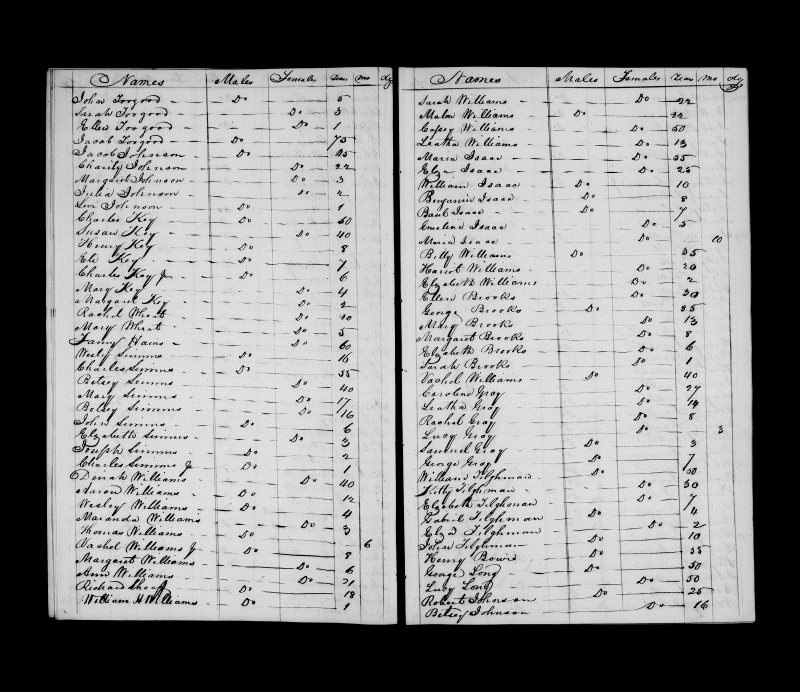 Names Males Females Years mo dy
John Toogood - Do 5
Sarah Toogood - Do 3
Ellen Toogood - Do 1
Jacob Toogood - Do 75
Jacob Johnson - Do 25
Charity Johnson - Do 22
Margaret Johnson - Do 3
Julia Johnson - Do 2
Levi Johnson Do 1
Charles Key Do 50
Susan Key - Do 40
Henry Key Do 8
Eli Key - Do 7
Charles Key Jr - Do 6
Mary Key Do 4
Margaret Key - Do 2
Rachel Wheat Do 20
Mary Wheat - Do 5
Fanny Hains - Do 60
Wesly Simms Do 16
Charles Simms Do 55
Betsey Simms Do 40
Mary Simms - Do 17
Betsey Simms - Do 16
John Simms Do 6
Elizabeth Simms - Do 3
Joseph Simms - Do 2
Charles Simms Jr Do 1
Dinah Williams Do 40
Aaron Williams - Do 12
Wesley Williams - Do 4
Maranda Williams Do 3
Thomas Williams Do 6
Vachel Williams Jr Do 8
Margaret Williams Do 6
Ann Williams Do 21
Richard Do 18
William H Williams Do 1
Names Males Females Years mo dy
Sarah Williams - Do 22
Malon Williams Do 22
Williams - Do 50
Leatha Williams - Do 13
Maria Isaac - Do 35
Eliza Isaac - Do 25
William Isaac Do 10
Benjamin Isaac Do 8
Paul Isaac - Do 7
Emeline Isaac Do 5
Maria Isaac - Do 10
Billy Williams Do 35
Hariot Williams Do 20
Elizabeth Williams Do 2
Ellen Brooks Do 30
George Brooks Do 35
Mary Brooks Do 13
Margaret Brooks Do 8
Elizabeth Brooks Do 6
Sarah Brooks Do 1
Vachel Williams Do 40
Caroline Gray Do 27
Leatha Gray Do 14
Rachel Gray Do 8
Lucy Gray Do 3
Samuel Gray Do 3
George Gray Do 7
William Tilghman - Do 50
Kitty Tilghman - Do 30
Elizabeth Tilghman Do 7
Gabril Tilghman Do 4
Eliza Tilghman Do 2
John Tilghman Do 10
Henry Bowie Do 35
George Long Do 50
Lucy Long Do 50
Robert Johnson Do 25
Betsey Johnson Do 16